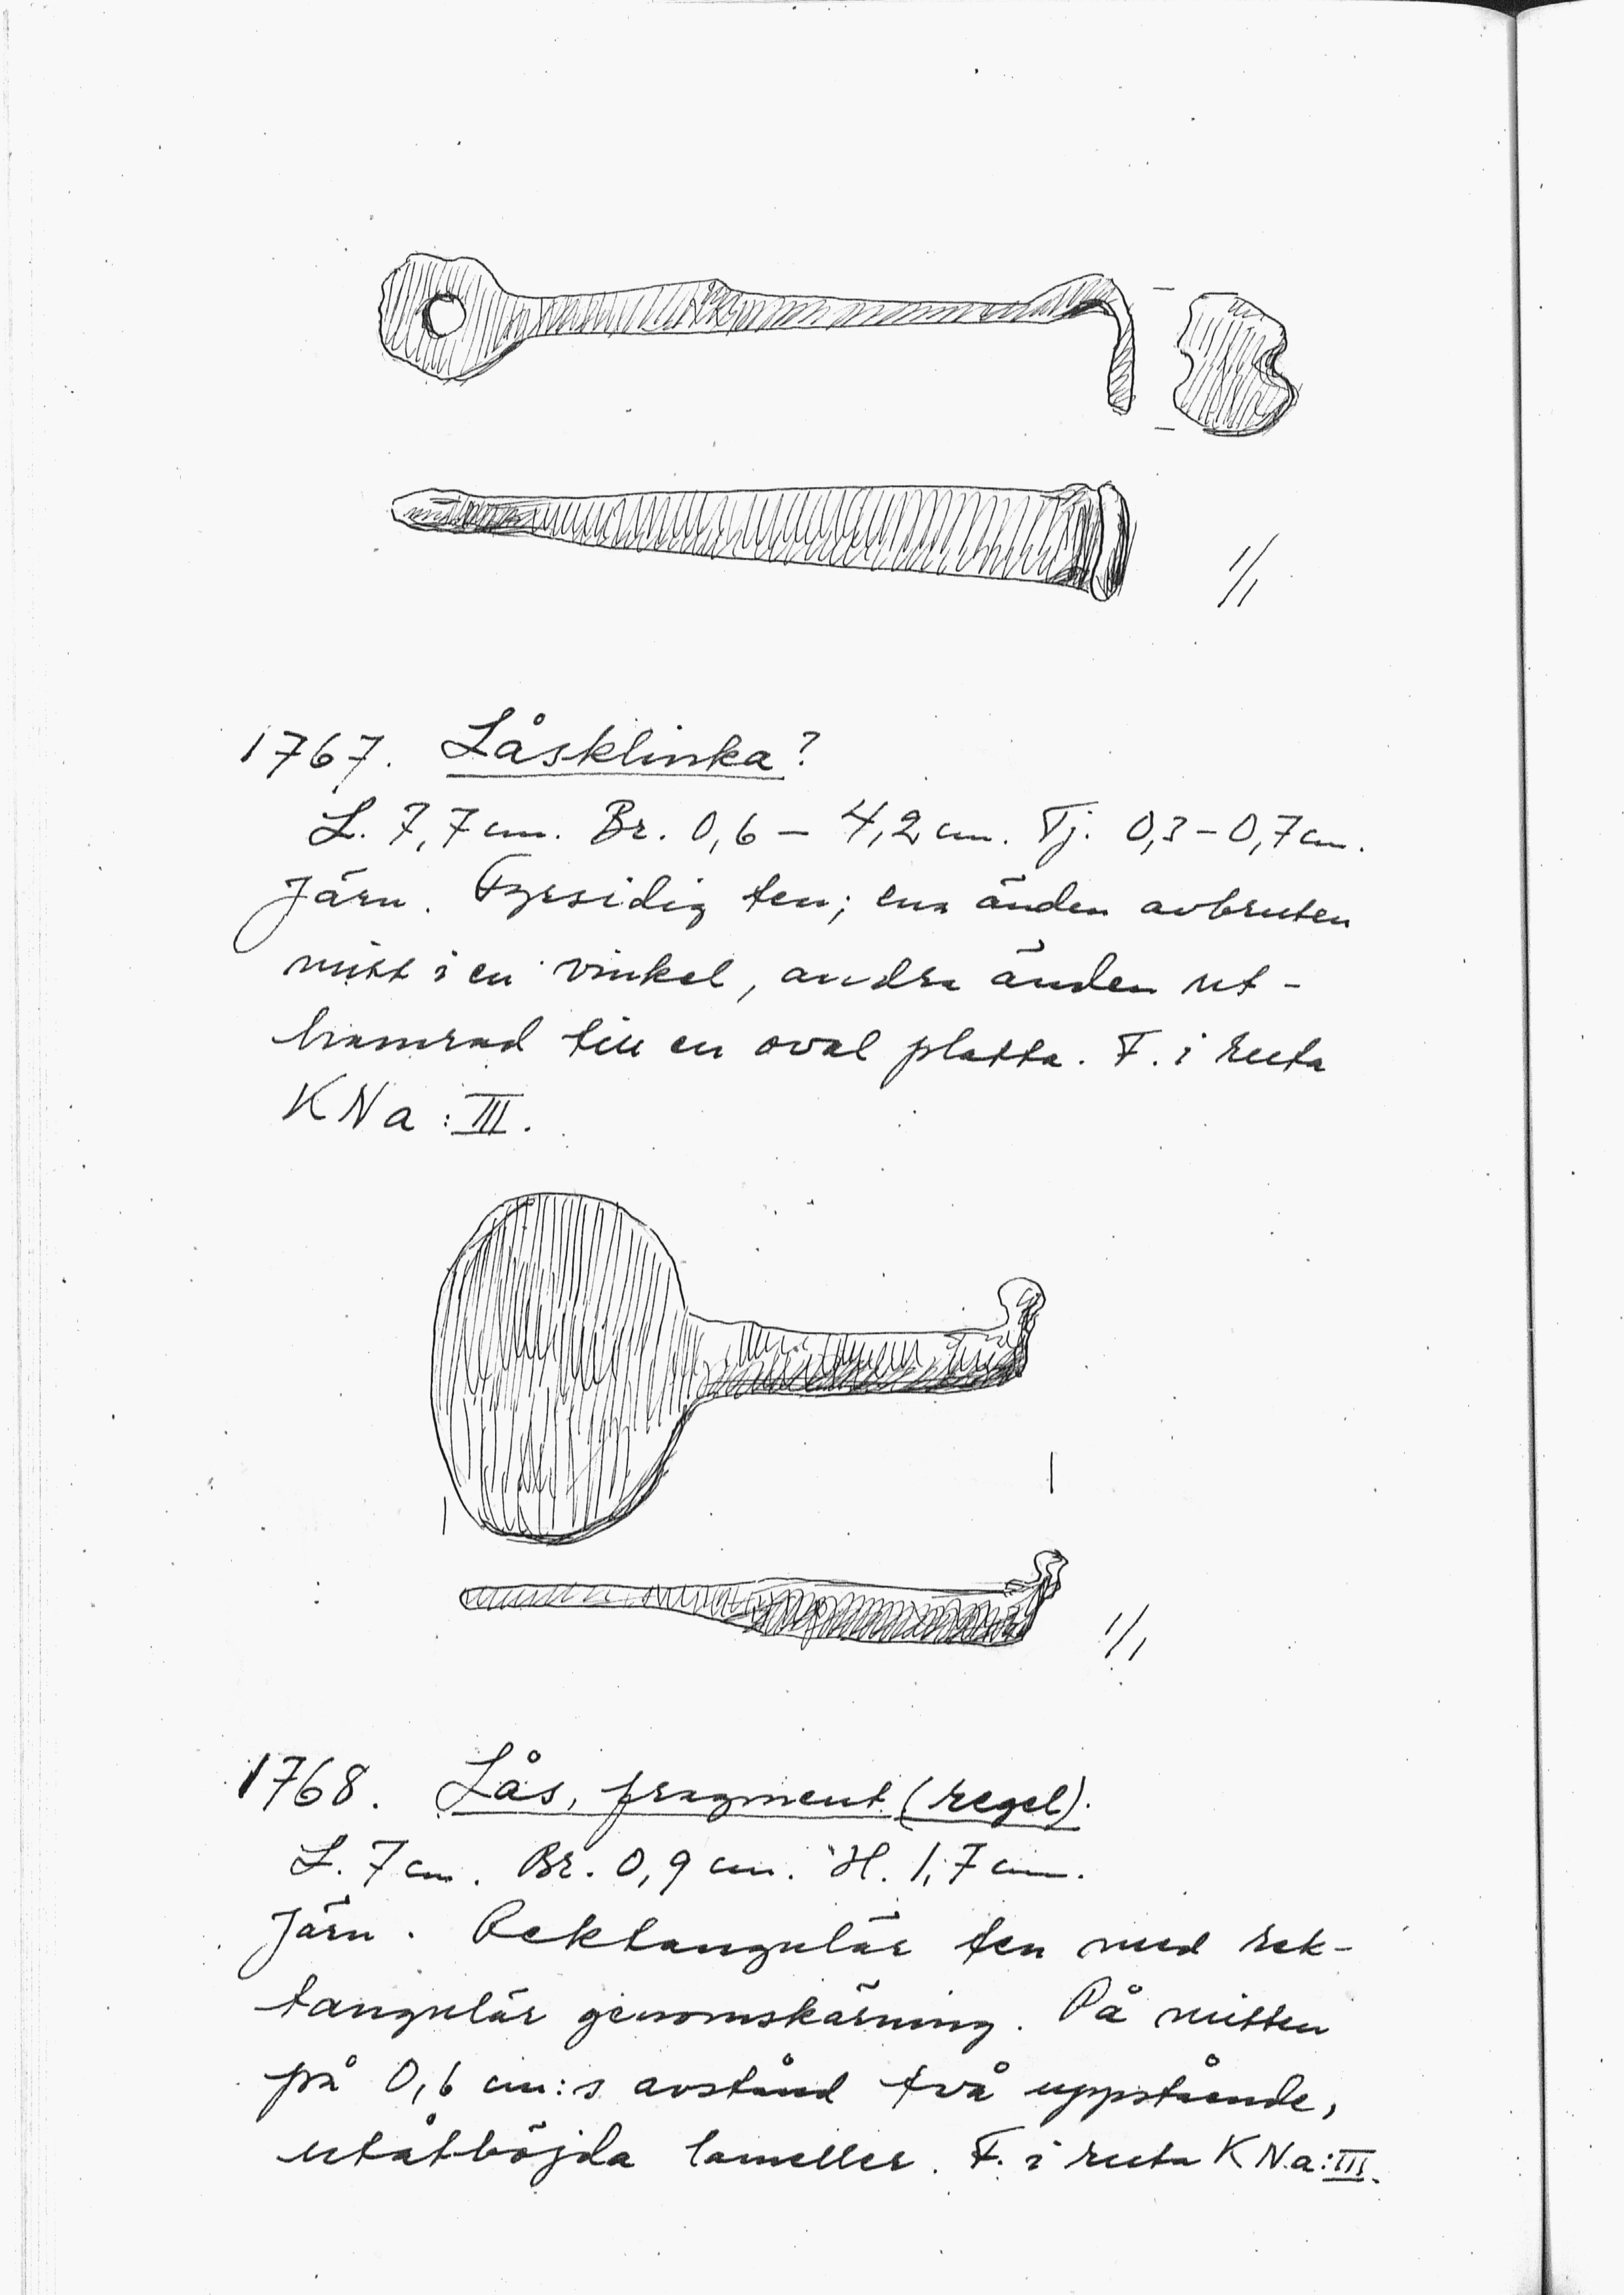 1/1
1767. Låsklinka?
L. 7,7 cm. Br. 0,6 – 4,2 cm. Tj. 0,3 – 0,7 cm.
Järn. Fyrsidig ten; ena änden avbruten
mitt i en vinkel, andra änden ut-
hamrad till en oval platta. F. i ruta
KNa:III.
1/1
1768. Lås, fragment (regel).
L. 7 cm. Br. 0,9 cm. H. 1,7 cm.
Järn. Rektangulär ten med rek-
tangulär genomskärning. På mitten
på 0,6 cm:s avstånd två uppstående,
utåtböjda lameller. F. i ruta KNa:III.